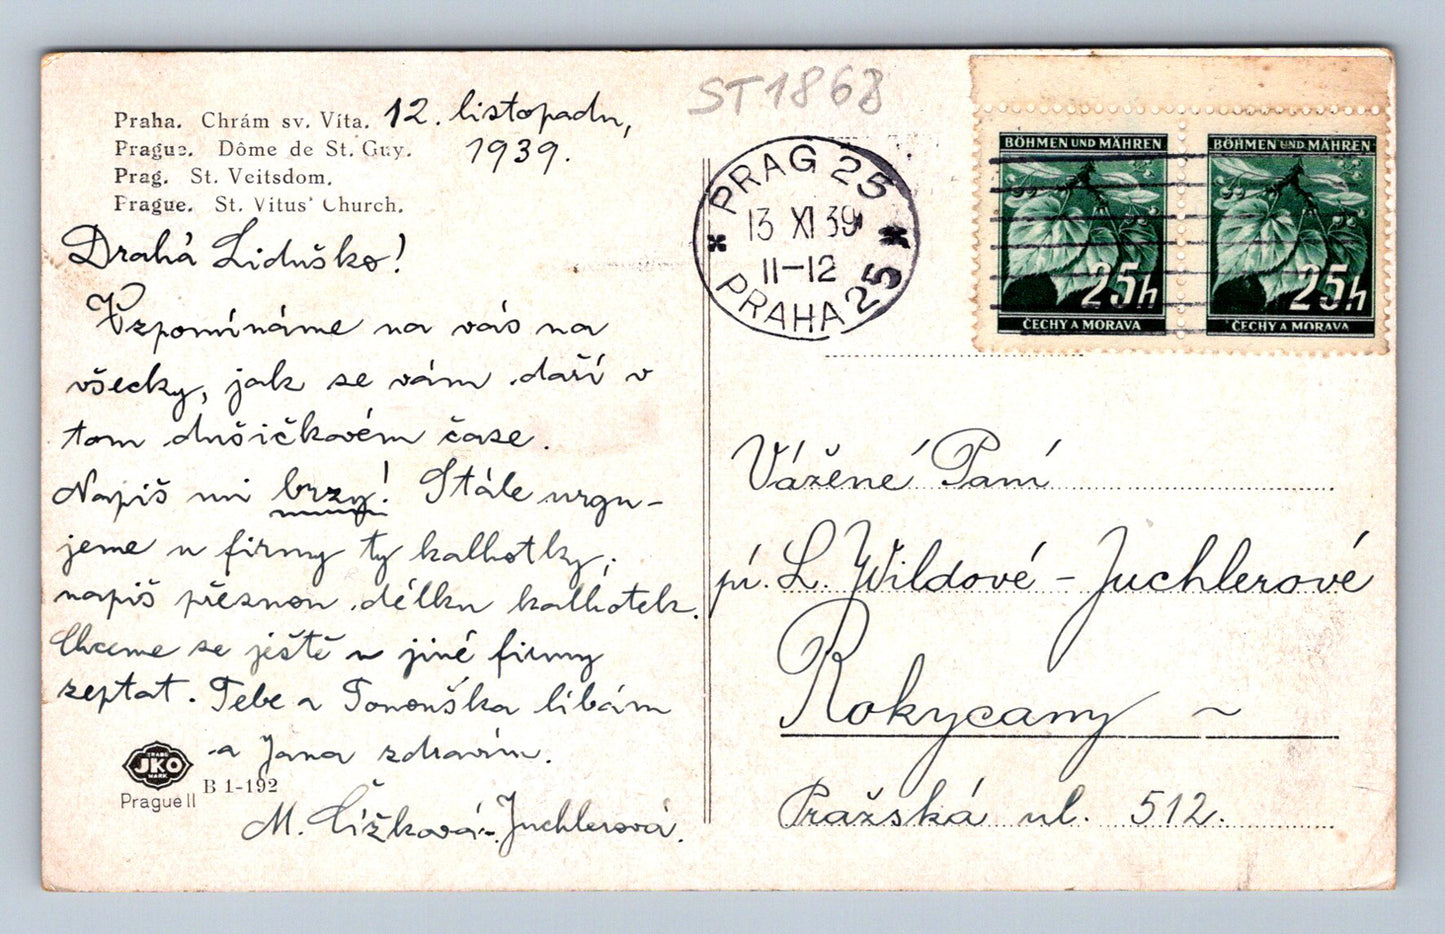 ST1868
Praha. Chrám sv. Víta. 12. listopadu,
Prague. Dôme de St. Guy. 1939.
Prag. St. Veitsdom.
Prague. St. Vitus' Church.
Drahá Liduško!
Vzpomínáme na vás na
všecky, jak se vám daří v
tom dušičkovém čase.
Napiš mi brzy! Stále urgu-
jeme u firmy ty kalhotky;
napiš přesnou délku kalhotek.
Chceme se ještě u jiné firmy
zeptat. Tebe a Tonouška líbám
a Jana zdravím.
M. Čížková-Juchlerová.
TRADE
JKO
MARK
Prague II
B 1-192
PRAG 25
13 XI 39
11-12
PRAHA 25
BÖHMEN UND MÄHREN
25h
ČECHY A MORAVA
BÖHMEN UND MÄHREN
25h
ČECHY A MORAVA
Vážené Paní
pí. L. Wildové-Juchlerové
Rokycany ~
Pražská ul. 512.